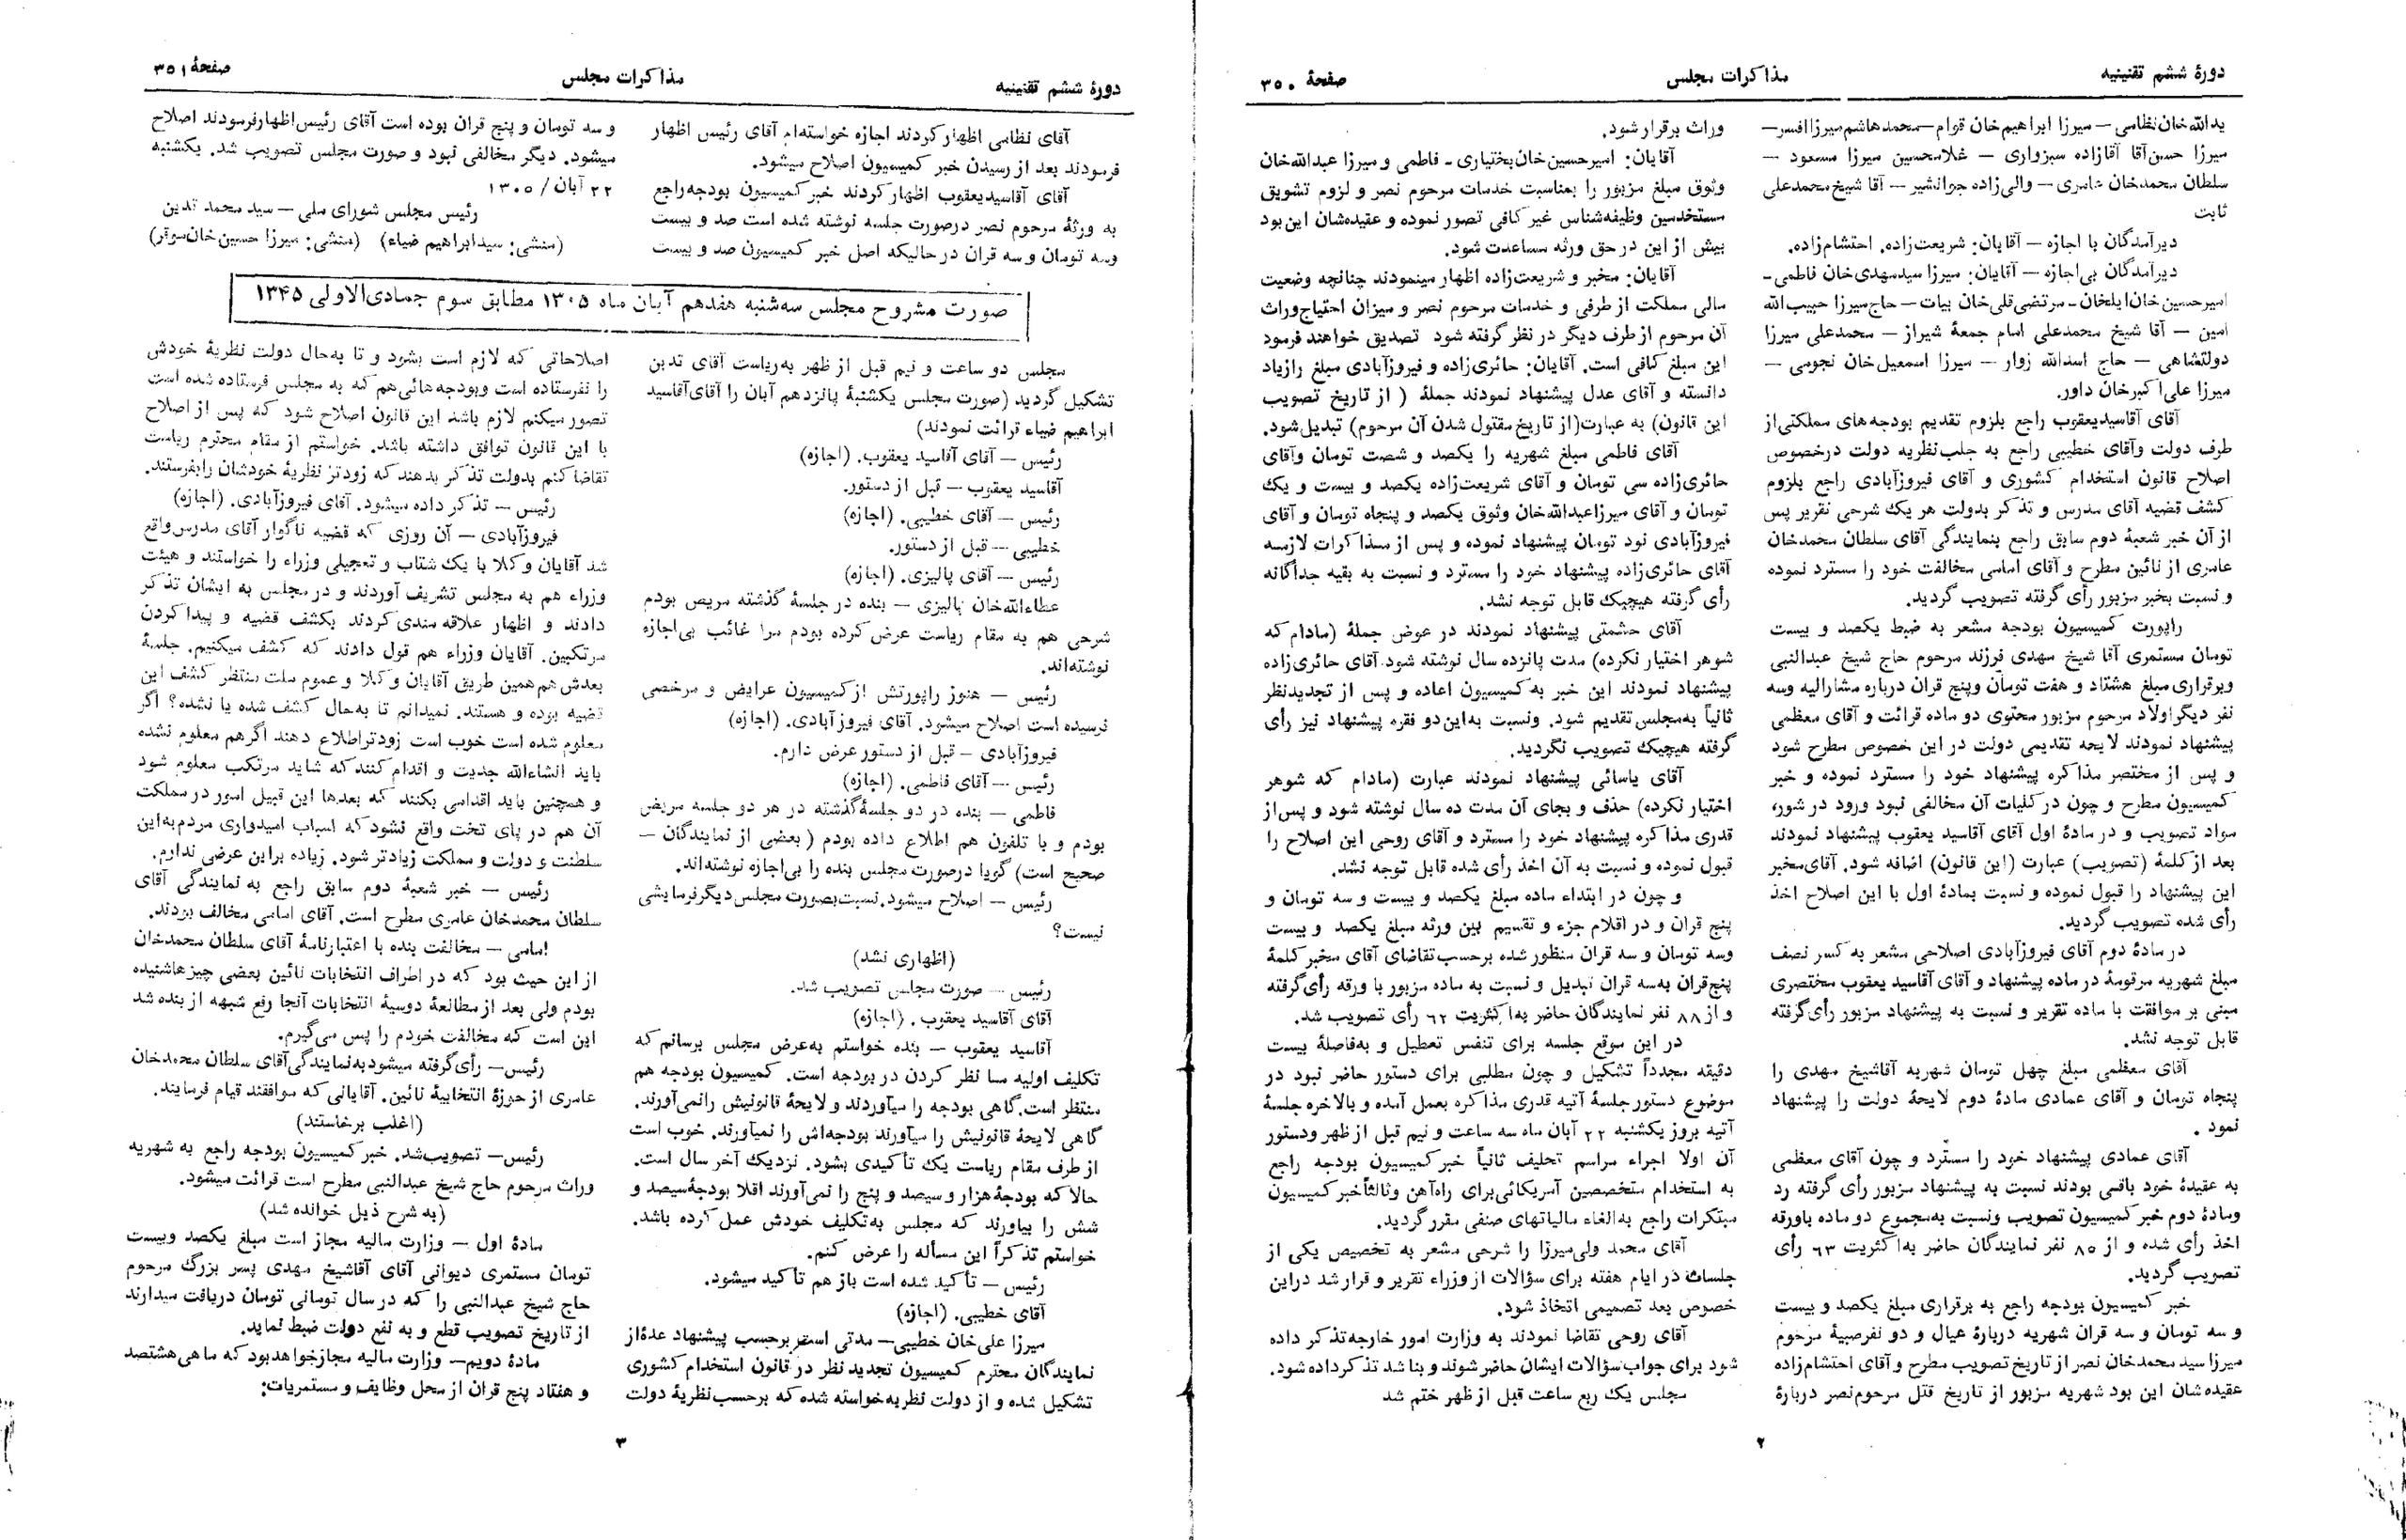 دورهٔ ششم تقنینیه
مذاکرات مجلس
صفحهٔ ۳۵۰
یدالله‌خان نظامی — میرزا ابراهیم‌خان قوام — محمدهاشم میرزا افسر —
میرزا حسن‌آقا آقازاده سبزواری — غلامحسین میرزا مسعود —
سلطان محمدخان عامری — والی‌زاده جوانشیر — آقا شیخ محمدعلی
ثابت
دیرآمدگان با اجازه — آقایان: شریعت‌زاده. احتشام‌زاده.
دیرآمدگان بی‌اجازه — آقایان: میرزا سیدمهدی‌خان فاطمی —
امیرحسین‌خان ایلخان — مرتضی‌قلی‌خان بیات — حاج میرزا حبیب‌الله
امین — آقا شیخ محمدعلی امام جمعهٔ شیراز — محمدعلی میرزا
دولتشاهی — حاج اسدالله زوار — میرزا اسمعیل‌خان نجومی —
میرزا علی‌اکبرخان داور.
آقای آقاسیدیعقوب راجع بلزوم تقدیم بودجه‌های مملکتی از
طرف دولت وآقای خطیبی راجع به جلب نظریه دولت درخصوص
اصلاح قانون استخدام کشوری و آقای فیروزآبادی راجع بلزوم
کشف قضیه آقای مدرس و تذکر بدولت هر یک شرحی تقریر پس
از آن خبر شعبهٔ دوم سابق راجع بنمایندگی آقای سلطان محمدخان
عامری از نائین مطرح و آقای امامی مخالفت خود را مسترد نموده
و نسبت بخبر مزبور رأی گرفته تصویب گردید.
راپورت کمیسیون بودجه مشعر به ضبط یکصد و بیست
تومان مستمری آقا شیخ مهدی فرزند مرحوم حاج شیخ عبدالنبی
وبرقراری مبلغ هشتاد و هفت تومان وپنج قران درباره مشارالیه وسه
نفر دیگر اولاد مرحوم مزبور محتوی دو ماده قرائت و آقای معظمی
پیشنهاد نمودند لایحه تقدیمی دولت در این خصوص مطرح شود
و پس از مختصر مذاکره پیشنهاد خود را مسترد نموده و خبر
کمیسیون مطرح و چون در کلیات آن مخالفی نبود ورود در شور،
مواد تصویب و در مادهٔ اول آقای آقاسید یعقوب پیشنهاد نمودند
بعد از کلمهٔ (تصویب) عبارت (این قانون) اضافه شود. آقای مخبر
این پیشنهاد را قبول نموده و نسبت بمادهٔ اول با این اصلاح اخذ
رأی شده تصویب گردید.
در مادهٔ دوم آقای فیروزآبادی اصلاحی مشعر به کسر نصف
مبلغ شهریه مرقومهٔ در ماده پیشنهاد و آقای آقاسید یعقوب مختصری
مبنی بر موافقت با ماده تقریر و نسبت به پیشنهاد مزبور رأی گرفته
قابل توجه نشد.
آقای معظمی مبلغ چهل تومان شهریه آقاشیخ مهدی را
پنجاه تومان و آقای عمادی مادهٔ دوم لایحهٔ دولت را پیشنهاد
نمود .
آقای عمادی پیشنهاد خود را مسترد و چون آقای معظمی
به عقیدهٔ خود باقی بودند نسبت به پیشنهاد مزبور رأی گرفته رد
ومادهٔ دوم خبر کمیسیون تصویب ونسبت به‌مجموع دو ماده باورقه
اخذ رأی شده و از ۸۵ نفر نمایندگان حاضر به‌اکثریت ۶۳ رأی
تصویب گردید.
خبر کمیسیون بودجه راجع به برقراری مبلغ یکصد و بیست
و سه تومان و سه قران شهریه دربارهٔ عیال و دو نفرصبیهٔ مرحوم
میرزا سید محمدخان نصر از تاریخ تصویب مطرح و آقای احتشام‌زاده
عقیده‌شان این بود شهریه مزبور از تاریخ قتل مرحوم نصر دربارهٔ
وراث برقرار شود.
آقایان: امیرحسین‌خان بختیاری — فاطمی و میرزا عبدالله‌خان
وثوق مبلغ مزبور را بمناسبت خدمات مرحوم نصر و لزوم تشویق
مستخدمین وظیفه‌شناس غیر کافی تصور نموده و عقیده‌شان این بود
بیش از این در حق ورثه مساعدت شود.
آقایان: مخبر و شریعت‌زاده اظهار مینمودند چنانچه وضعیت
مالی مملکت از طرفی و خدمات مرحوم نصر و میزان احتیاج وراث
آن مرحوم از طرف دیگر در نظر گرفته شود تصدیق خواهند فرمود
این مبلغ کافی است. آقایان: حائری‌زاده و فیروزآبادی مبلغ رازیاد
دانسته و آقای عدل پیشنهاد نمودند جملهٔ ( از تاریخ تصویب
این قانون) به عبارت(از تاریخ مقتول شدن آن مرحوم) تبدیل شود.
آقای فاطمی مبلغ شهریه را یکصد و شصت تومان وآقای
حائری‌زاده سی تومان و آقای شریعت‌زاده یکصد و بیست و یک
تومان و آقای میرزاعبدالله‌خان وثوق یکصد و پنجاه تومان و آقای
فیروزآبادی نود تومان پیشنهاد نموده و پس از مذاکرات لازمه
آقای حائری‌زاده پیشنهاد خود را مسترد و نسبت به بقیه جداگانه
رأی گرفته هیچیک قابل توجه نشد.
آقای حشمتی پیشنهاد نمودند در عوض جملهٔ (مادام که
شوهر اختیار نکرده) مدت پانزده سال نوشته شود. آقای حائری‌زاده
پیشنهاد نمودند این خبر به کمیسیون اعاده و پس از تجدیدنظر
ثانیاً به‌مجلس تقدیم شود. ونسبت به‌این دو فقره پیشنهاد نیز رأی
گرفته هیچیک تصویب نگردید.
آقای یاسائی پیشنهاد نمودند عبارت (مادام که شوهر
اختیار نکرده) حذف و بجای آن مدت ده سال نوشته شود و پس از
قدری مذاکره پیشنهاد خود را مسترد و آقای روحی این اصلاح را
قبول نموده و نسبت به آن اخذ رأی شده قابل توجه نشد.
و چون در ابتداء ماده مبلغ یکصد و بیست و سه تومان و
پنج قران و در اقلام جزء و تقسیم بین ورثه مبلغ یکصد و بیست
وسه تومان و سه قران منظور شده برحسب تقاضای آقای مخبر کلمهٔ
پنج‌قران به‌سه قران تبدیل و نسبت به ماده مزبور با ورقه رأی گرفته
و از ۸۸ نفر نمایندگان حاضر به‌اکثریت ۶۲ رأی تصویب شد.
در این موقع جلسه برای تنفس تعطیل و به‌فاصلهٔ بیست
دقیقه مجدداً تشکیل و چون مطلبی برای دستور حاضر نبود در
موضوع دستور جلسهٔ آتیه قدری مذاکره بعمل آمده و بالاخره جلسهٔ
آتیه بروز یکشنبه ۲۲ آبان ماه سه ساعت و نیم قبل از ظهر ودستور
آن اولا اجراء مراسم تحلیف ثانیاً خبر کمیسیون بودجه راجع
به استخدام متخصصین آمریکائی برای راه‌آهن وثالثاً خبر کمیسیون
مبتکرات راجع به‌الغاء مالیاتهای صنفی مقرر گردید.
آقای محمد ولی‌میرزا را شرحی مشعر به تخصیص یکی از
جلسات در ایام هفته برای سؤالات از وزراء تقریر و قرار شد دراین
خصوص بعد تصمیمی اتخاذ شود.
آقای روحی تقاضا نمودند به وزارت امور خارجه تذکر داده
شود برای جواب سؤالات ایشان حاضر شوند و بنا شد تذکر داده شود.
مجلس یک ربع ساعت قبل از ظهر ختم شد
۲
دورهٔ ششم تقنینیه
مذاکرات مجلس
صفحهٔ ۳۵۱
آقای نظامی اظهار کردند اجازه خواسته‌ام آقای رئیس اظهار
فرمودند بعد از رسیدن خبر کمیسیون اصلاح میشود.
آقای آقاسیدیعقوب اظهار کردند خبر کمیسیون بودجه راجع
به ورثهٔ مرحوم نصر درصورت جلسه نوشته شده است صد و بیست
وسه تومان و سه قران در حالیکه اصل خبر کمیسیون صد و بیست
و سه تومان و پنج قران بوده است آقای رئیس اظهارفرمودند اصلاح
میشود. دیگر مخالفی نبود و صورت مجلس تصویب شد. یکشنبه
۲۲ آبان / ۱۳۰۵
رئیس مجلس شورای ملی — سید محمد تدین
(منشی: سیدابراهیم ضیاء) (منشی: میرزا حسین‌خان موقر)
صورت مشروح مجلس سه‌شنبه هفدهم آبان ماه ۱۳۰۵ مطابق سوم جمادی‌الاولی ۱۳۴۵
مجلس دو ساعت و نیم قبل از ظهر به‌ریاست آقای تدین
تشکیل گردید (صورت مجلس یکشنبهٔ پانزدهم آبان را آقای آقاسید
ابراهیم ضیاء قرائت نمودند)
رئیس — آقای آقاسید یعقوب. (اجازه)
آقاسید یعقوب — قبل از دستور.
رئیس — آقای خطیبی. (اجازه)
خطیبی — قبل از دستور.
رئیس — آقای پالیزی. (اجازه)
عطاءالله‌خان پالیزی — بنده در جلسهٔ گذشته مریض بودم
شرحی هم به مقام ریاست عرض کرده بودم مرا غائب بی‌اجازه
نوشته‌اند.
رئیس — هنوز راپورتش از کمیسیون عرایض و مرخصی
نرسیده است اصلاح میشود. آقای فیروزآبادی. (اجازه)
فیروزآبادی — قبل از دستور عرض دارم.
رئیس — آقای فاطمی. (اجازه)
فاطمی — بنده در دو جلسهٔ گذشته در هر دو جلسه مریض
بودم و با تلفون هم اطلاع داده بودم ( بعضی از نمایندگان —
صحیح است) گویا درصورت مجلس بنده را بی‌اجازه نوشته‌اند.
رئیس — اصلاح میشود. نسبت بصورت مجلس دیگر فرمایشی
نیست؟
(اظهاری نشد)
رئیس — صورت مجلس تصویب شد.
آقای آقاسید یعقوب . (اجازه)
آقاسید یعقوب — بنده خواستم به‌عرض مجلس برسانم که
تکلیف اولیه ما نظر کردن در بودجه است. کمیسیون بودجه هم
منتظر است. گاهی بودجه را میآوردند و لایحهٔ قانونیش رانمی‌آورند.
گاهی لایحهٔ قانونیش را میآورند بودجه‌اش را نمیآورند. خوب است
از طرف مقام ریاست یک تأکیدی بشود. نزدیک آخر سال است.
حالا که بودجهٔ هزار و سیصد و پنج را نمی‌آورند اقلا بودجهٔ سیصد و
شش را بیاورند که مجلس به‌تکلیف خودش عمل کرده باشد.
خواستم تذکراً این مسأله را عرض کنم.
رئیس — تأکید شده است باز هم تأکید میشود.
آقای خطیبی. (اجازه)
میرزا علی‌خان خطیبی — مدتی است برحسب پیشنهاد عدهٔ از
نمایندگان محترم کمیسیون تجدید نظر در قانون استخدام کشوری
تشکیل شده و از دولت نظریه خواسته شده که برحسب نظریهٔ دولت
اصلاحاتی که لازم است بشود و تا به‌حال دولت نظریهٔ خودش
را نفرستاده است وبودجه‌هائی‌هم که به مجلس فرستاده شده است
تصور میکنم لازم باشد این قانون اصلاح شود که پس از اصلاح
با این قانون توافق داشته باشد. خواستم از مقام محترم ریاست
تقاضا کنم بدولت تذکر بدهند که زودتر نظریهٔ خودشان رابفرستند.
رئیس — تذکر داده میشود. آقای فیروزآبادی. (اجازه)
فیروزآبادی — آن روزی که قضیه ناگوار آقای مدرس واقع
شد آقایان وکلا با یک شتاب و تعجیلی وزراء را خواستند و هیئت
وزراء هم به مجلس تشریف آوردند و در مجلس به ایشان تذکر
دادند و اظهار علاقه‌مندی کردند بکشف قضیه و پیدا کردن
مرتکبین. آقایان وزراء هم قول دادند که کشف میکنیم. جلسهٔ
بعدش هم همین طریق آقایان وکلا و عموم ملت منتظر کشف این
قضیه بوده و هستند. نمیدانم تا به‌حال کشف شده یا نشده؟ اگر
معلوم شده است خوب است زودتر اطلاع دهند اگرهم معلوم نشده
باید انشاءالله جدیت و اقدام کنند که شاید مرتکب معلوم شود
و همچنین باید اقدامی بکنند که بعدها این قبیل امور در مملکت
آن هم در پای تخت واقع نشود که اسباب امیدواری مردم به‌این
سلطنت و دولت و مملکت زیادتر شود. زیاده براین عرضی ندارم.
رئیس — خبر شعبهٔ دوم سابق راجع به نمایندگی آقای
سلطان محمدخان عامری مطرح است. آقای امامی مخالف بودند.
امامی — مخالفت بنده با اعتبارنامهٔ آقای سلطان محمدخان
از این حیث بود که در اطراف انتخابات نائین بعضی چیزهاشنیده
بودم ولی بعد از مطالعهٔ دوسیهٔ انتخابات آنجا رفع شبهه از بنده شد
این است که مخالفت خودم را پس می‌گیرم.
رئیس — رأی گرفته میشود به‌نمایندگی آقای سلطان محمدخان
عامری از حوزهٔ انتخابیهٔ نائین. آقایانی که موافقند قیام فرمایند.
(اغلب برخاستند)
رئیس — تصویب‌شد. خبر کمیسیون بودجه راجع به شهریه
وراث مرحوم حاج شیخ عبدالنبی مطرح است قرائت میشود.
(به شرح ذیل خوانده شد)
مادهٔ اول — وزارت مالیه مجاز است مبلغ یکصد وبیست
تومان مستمری دیوانی آقای آقاشیخ مهدی پسر بزرگ مرحوم
حاج شیخ عبدالنبی را که در سال تومانی تومان دریافت میدارند
از تاریخ تصویب قطع و به نفع دولت ضبط نماید.
مادهٔ دویم — وزارت مالیه مجازخواهدبود که ماهی هشتصد
و هفتاد پنج قران از محل وظایف و مستمریات:
۳